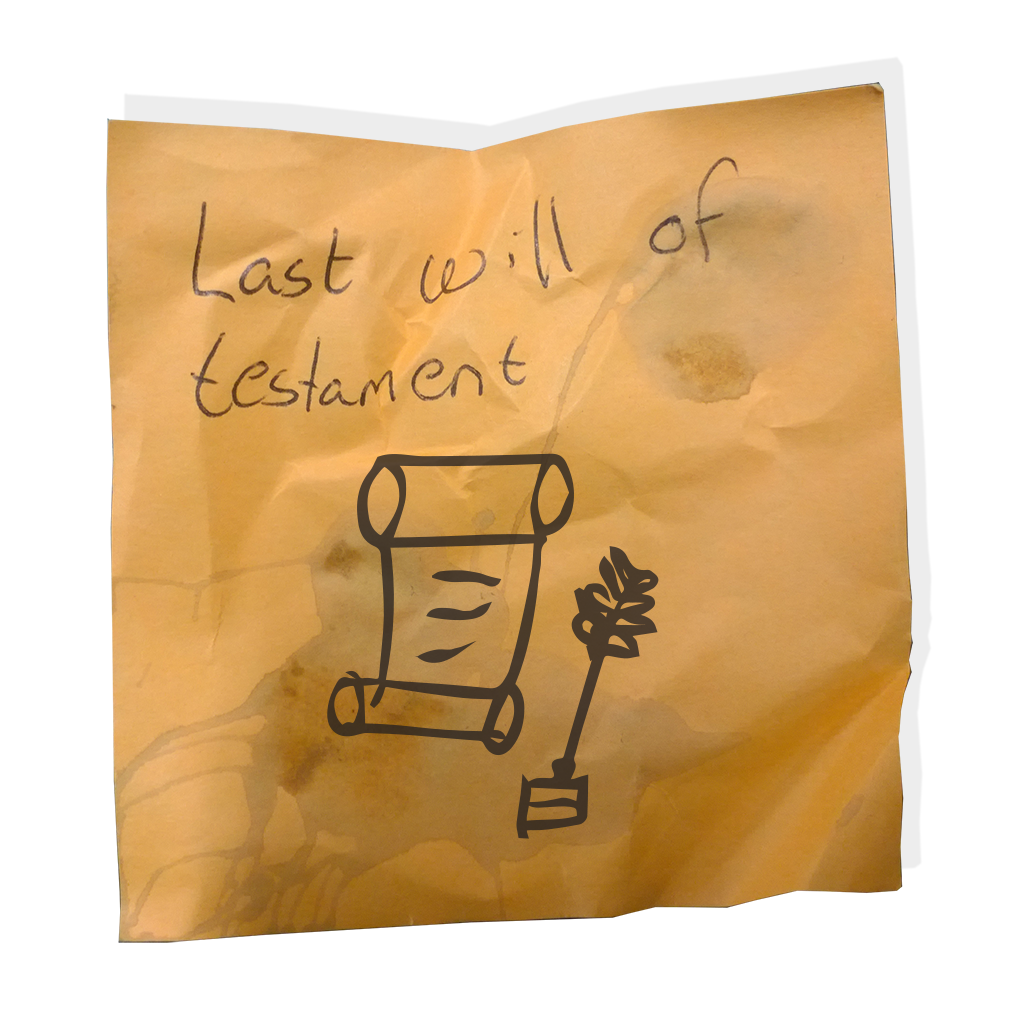 Last will of
testament